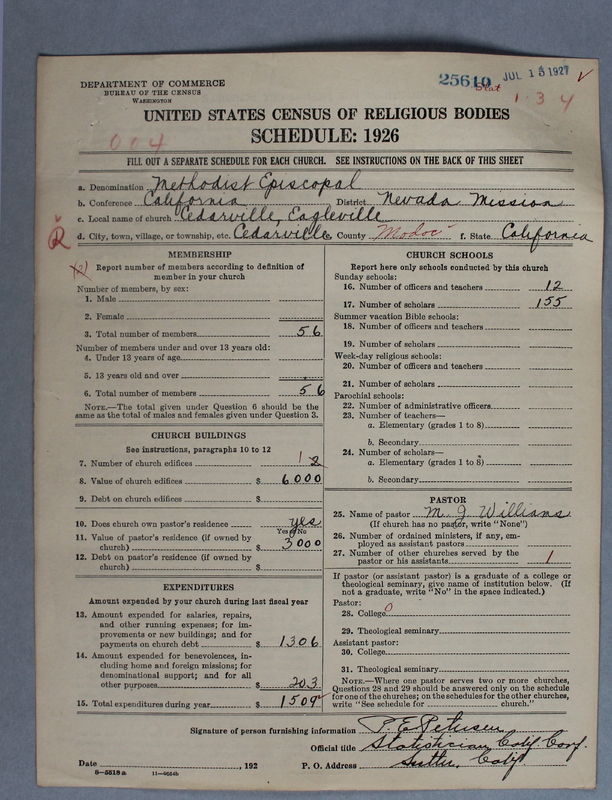 DEPARTMENT OF COMMERCE
BUREAU OF THE CENSUS
WASHINGTON
25610 JUL 15 1927
1 3 4
UNITED STATES CENSUS OF RELIGIOUS BODIES
004
SCHEDULE: 1926
FILL OUT A SEPARATE SCHEDULE FOR EACH CHURCH. SEE INSTRUCTIONS ON THE BACK OF THIS SHEET
a. Denomination Methodist Episcopal
b. Conference California District Nevada Mission
c. Local name of church Cedarville, Eagleville
R d. City, town, village, or township, etc. Cedarville, County Modoc f. State California
MEMBERSHIP
Report number of members according to definition of member in your church
Number of members, by sex:
1. Male
2. Female
3. Total number of members 56
Number of members under and over 13 years old:
4. Under 13 years of age
5. 13 years old and over
6. Total number of members 56
NOTE.—The total given under Question 6 should be the
same as the total of males and females given under Question 3.
CHURCH BUILDINGS
See instructions, paragraphs 10 to 12
7. Number of church edifices 1 2
8. Value of church edifices $ 6000
9. Debt on church edifices $
10. Does church own pastor's residence yes
Yes or No
11. Value of pastor's residence (if owned by
church) $ 3000
12. Debt on pastor's residence (if owned by
church) $
EXPENDITURES
Amount expended by your church during last fiscal year
13. Amount expended for salaries, repairs,
and other running expenses; for im-
provements or new buildings; and for
payments on church debt $ 1306
14. Amount expended for benevolences, in-
cluding home and foreign missions; for
denominational support; and for all
other purposes $ 203
15. Total expenditures during year $ 1509
CHURCH SCHOOLS
Report here only schools conducted by this church
Sunday schools:
16. Number of officers and teachers 12
17. Number of scholars 155
Summer vacation Bible schools:
18. Number of officers and teachers
19. Number of scholars
Week-day religious schools:
20. Number of officers and teachers
21. Number of scholars
Parochial schools:
22. Number of administrative officers
23. Number of teachers—
a. Elementary (grades 1 to 8)
b. Secondary
24. Number of scholars—
a. Elementary (grades 1 to 8)
b. Secondary
PASTOR
25. Name of pastor M. J. Williams
(If church has no pastor, write "None")
26. Number of ordained ministers, if any, em-
ployed as assistant pastors
27. Number of other churches served by the
pastor or his assistants 1
If pastor (or assistant pastor) is a graduate of a college or
theological seminary, give name of institution below. (If
not a graduate, write "No" in the space indicated.)
Pastor:
28. College 0
29. Theological seminary
Assistant pastor:
30. College
31. Theological seminary
NOTE.—Where one pastor serves two or more churches,
Questions 28 and 29 should be answered only on the schedule
for one of the churches; on the schedules for the other churches,
write "See schedule for church."
Signature of person furnishing information P. E. Petersen
Official title Statistician, Calif. Conf.
Date , 192 P. O. Address Sutter, Calif
8—5518a 11—9554b